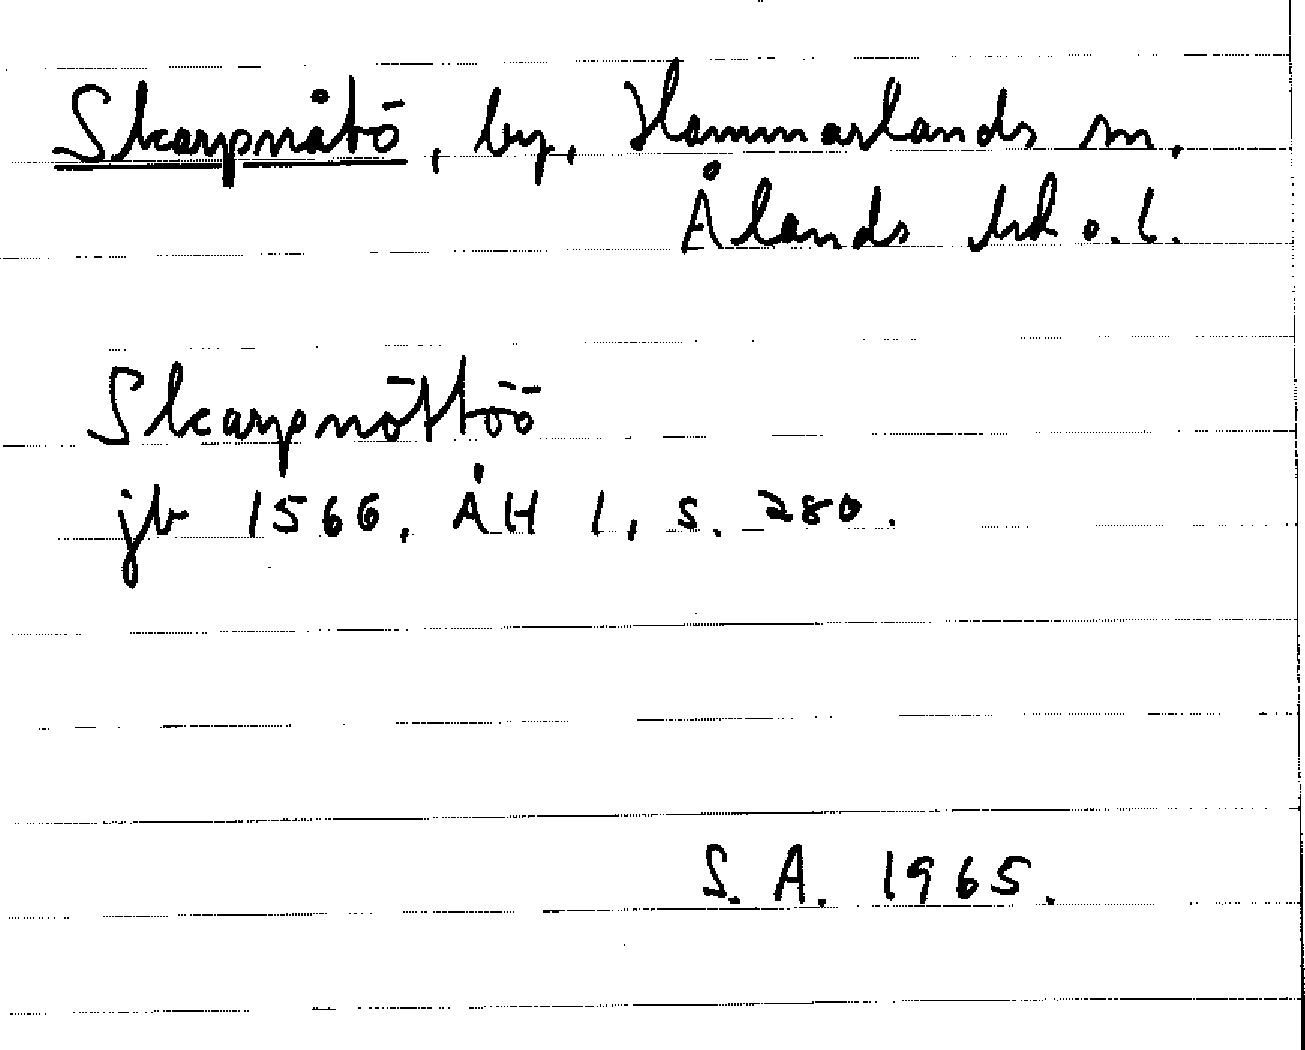 Skarpnåtö, by, Hammarlands sn,
Ålands hd o. l.
Skarpnöttöö
jb 1566, ÅH 1, s. 280.
S. A. 1965.